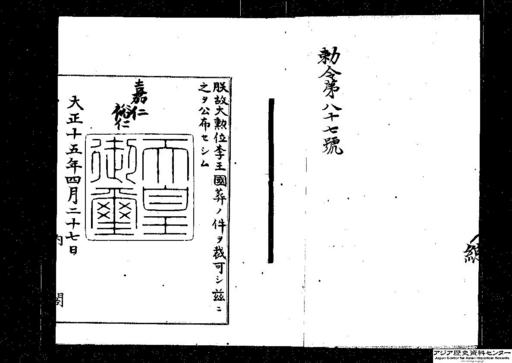 勅令第八十七號
朕故大勲位李王國葬ノ件ヲ裁可シ茲ニ
之ヲ公布セシム
嘉仁
裕仁
天皇
御璽
大正十五年四月二十七日
内閣
アジア歴史資料センター
Japan Center for Asian Historical Records